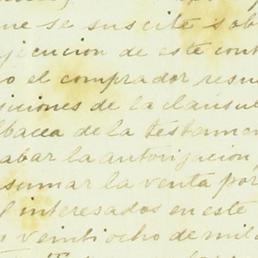 ue se suscite sob
ejecucion de este cont
o el comprador resu
siciones de la cláusul
lbacea de la testamen
abar la autorizacion
sumar la venta por
l interesados en este
veintiocho de mil